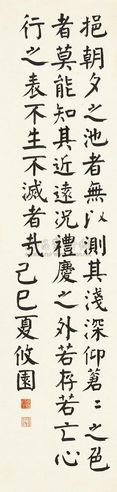 挹朝夕之池者無以測其淺深仰蒼〻之色
者莫能知其近遠況禮慶之外若存若亡心
行之表不生不滅者哉己巳夏攸園